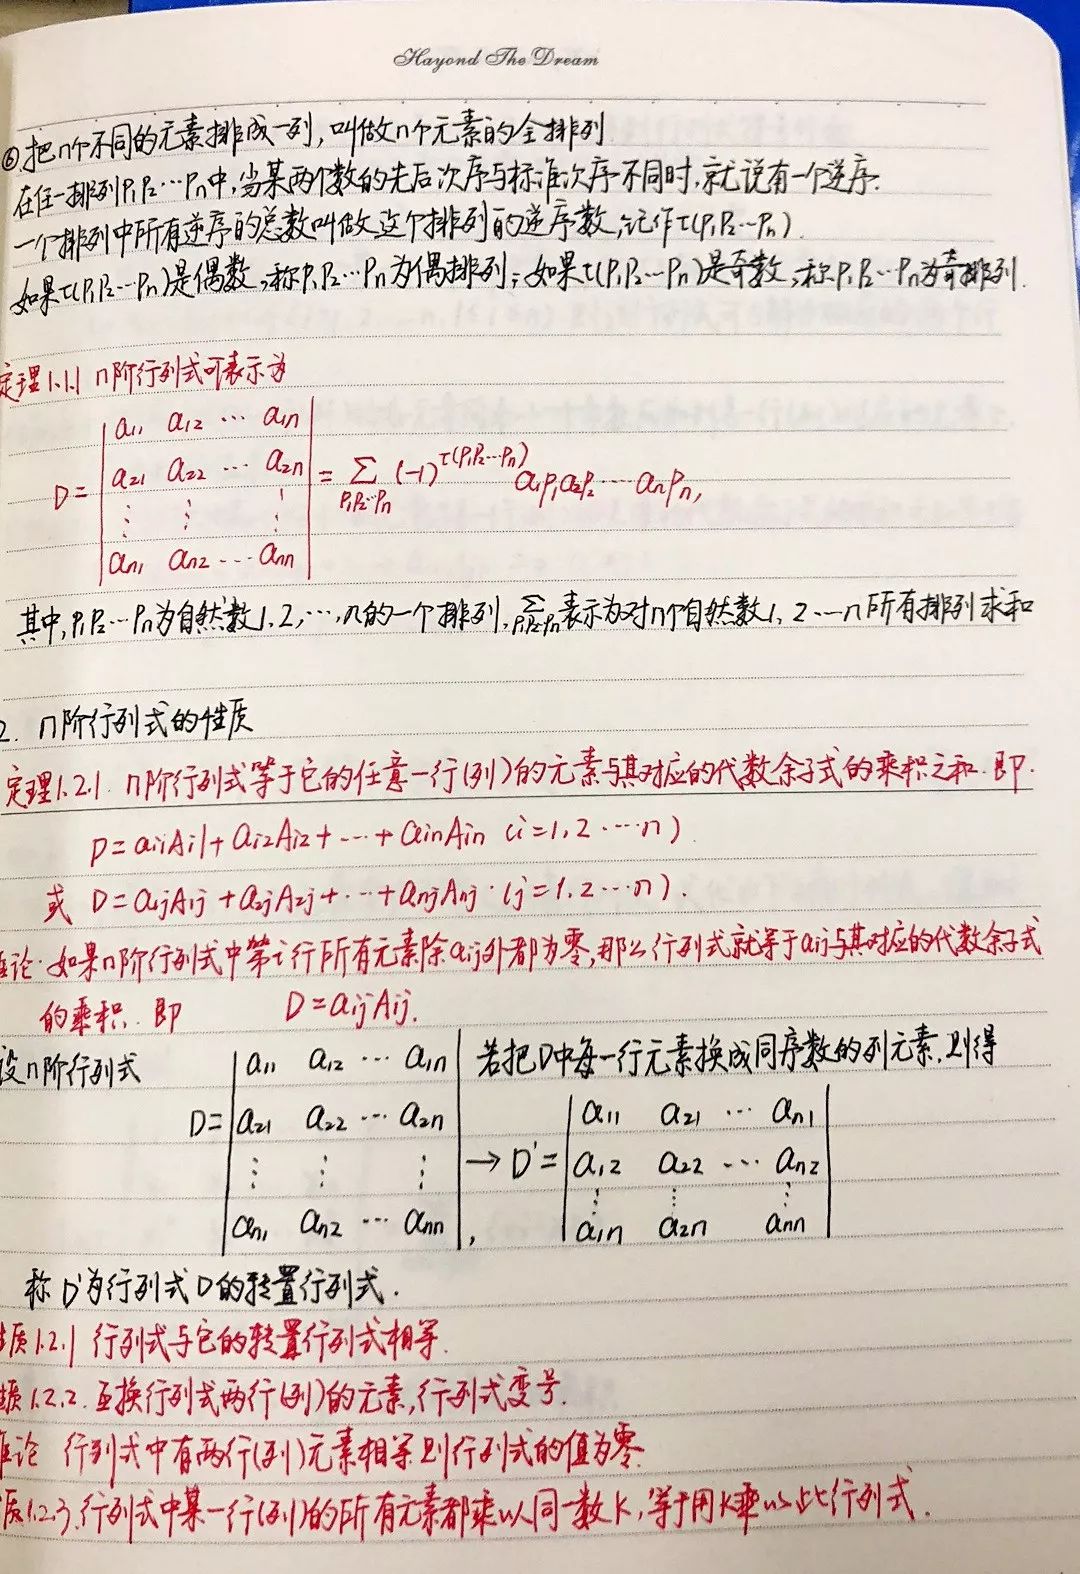 Hayond The Dream
⑥.把n个不同的元素排成一列,叫做n个元素的全排列
在任一排列P₁P₂…Pₙ中,当某两个数的先后次序与标准次序不同时,就说有一个逆序.
一个排列中所有逆序的总数叫做这个排列的逆序数,记作τ(P₁P₂…Pₙ).
如果τ(P₁P₂…Pₙ)是偶数,称P₁P₂…Pₙ为偶排列;如果τ(P₁P₂…Pₙ)是奇数,称P₁P₂…Pₙ为奇排列.
定理1.1.1 n阶行列式可表示为
a₁₁ a₁₂ … a₁ₙ
D= a₂₁ a₂₂ … a₂ₙ = ∑ (-1)^τ(P₁P₂…Pₙ) a₁P₁a₂P₂……aₙPₙ,
⋮ ⋮ ⋮ P₁P₂…Pₙ
aₙ₁ aₙ₂ … aₙₙ
其中,P₁P₂…Pₙ为自然数1,2,…,n的一个排列,∑P₁P₂…Pₙ表示为对n个自然数1,2…n所有排列求和
2. n阶行列式的性质
定理1.2.1. n阶行列式等于它的任意一行(列)的元素与其对应的代数余子式的乘积之和.即.
D=aᵢ₁Aᵢ₁+aᵢ₂Aᵢ₂+…+aᵢₙAᵢₙ (i=1,2…n)
或 D=a₁ⱼA₁ⱼ+a₂ⱼA₂ⱼ+…+aₙⱼAₙⱼ.(j=1,2…n).
论.如果n阶行列式中第i行所有元素除aᵢⱼ外都为零,那么行列式就等于aᵢⱼ与其对应的代数余子式
的乘积.即 D=aᵢⱼAᵢⱼ.
设n阶行列式 a₁₁ a₁₂ … a₁ₙ 若把D中每一行元素换成同序数的列元素.则得
D= a₂₁ a₂₂ … a₂ₙ a₁₁ a₂₁ … aₙ₁
⋮ ⋮ ⋮ → D'= a₁₂ a₂₂ … aₙ₂
aₙ₁ aₙ₂ … aₙₙ , ⋮ ⋮ ⋮
a₁ₙ a₂ₙ aₙₙ
称D'为行列式D的转置行列式.
质1.2.1 行列式与它的转置行列式相等.
质1.2.2.互换行列式两行(列)的元素,行列式变号.
论 行列式中有两行(列)元素相等则行列式的值为零.
质1.2.3.行列式中某一行(列)的所有元素都乘以同一数K,等于用K乘以此行列式.